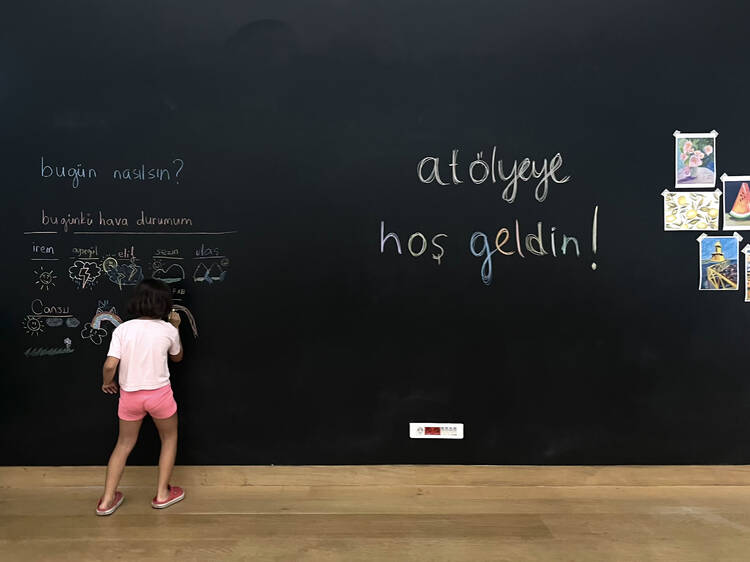 bugün nasılsın?
bugünkü hava durumum
irem ayşegül elif sezin utas
Cansu
atölyeye
hoş geldin!